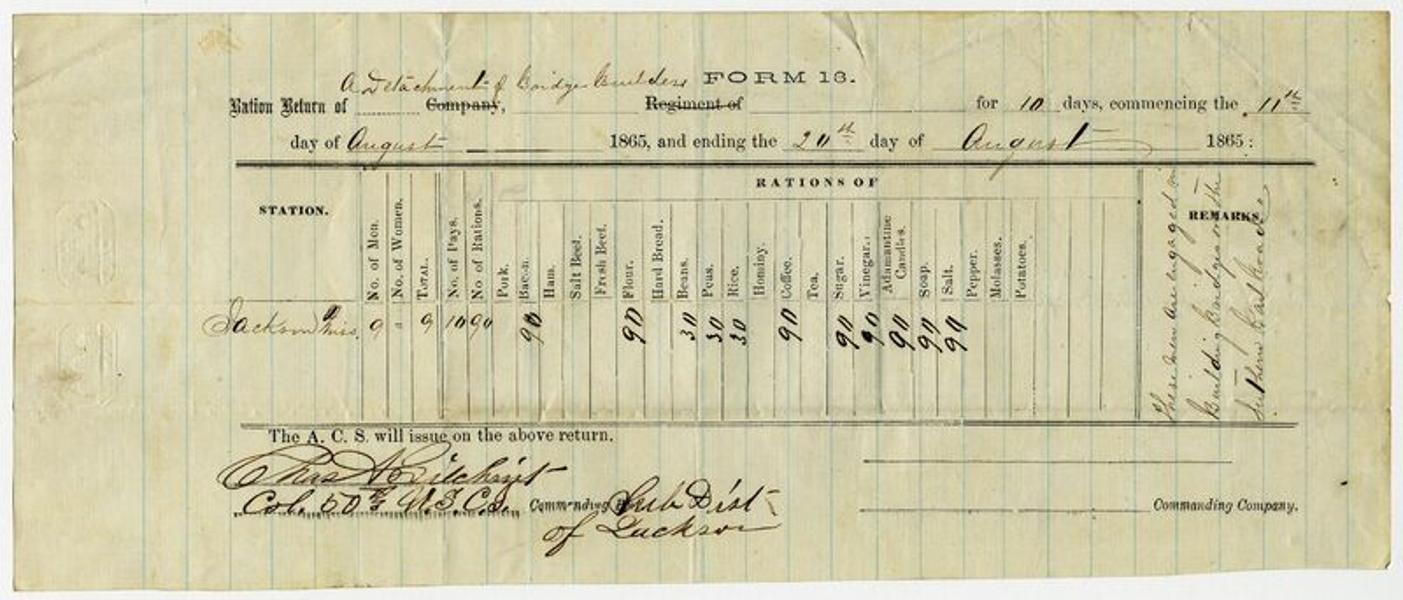 A Detachment of Bridge Builders FORM 13.
Ration Return of Company, Regiment of for 10 days, commencing the 11th
day of August 1865, and ending the 20th day of August 1865:
RATIONS OF
STATION. No. of Men. No. of Women. TOTAL. No. of Days. No. of Rations. Pork. Bacon. Ham. Salt Beef. Fresh Beef. Flour. Hard Bread. Beans. Peas. Rice. Hominy. Coffee. Tea. Sugar. Vinegar. Adamantine Candles. Soap. Salt. Pepper. Molasses. Potatoes. REMARKS.
Jackson Miss. 9 " 9 10 90 90 90 30 30 30 90 90 90 90 90 90
These men are engaged in
Building Bridges on the
Southern Railroad
The A. C. S. will issue on the above return.
Chas A Gilchrist
Col. 50th U.S.C.I. Commanding Sub Dist
of Jackson
Commanding Company.